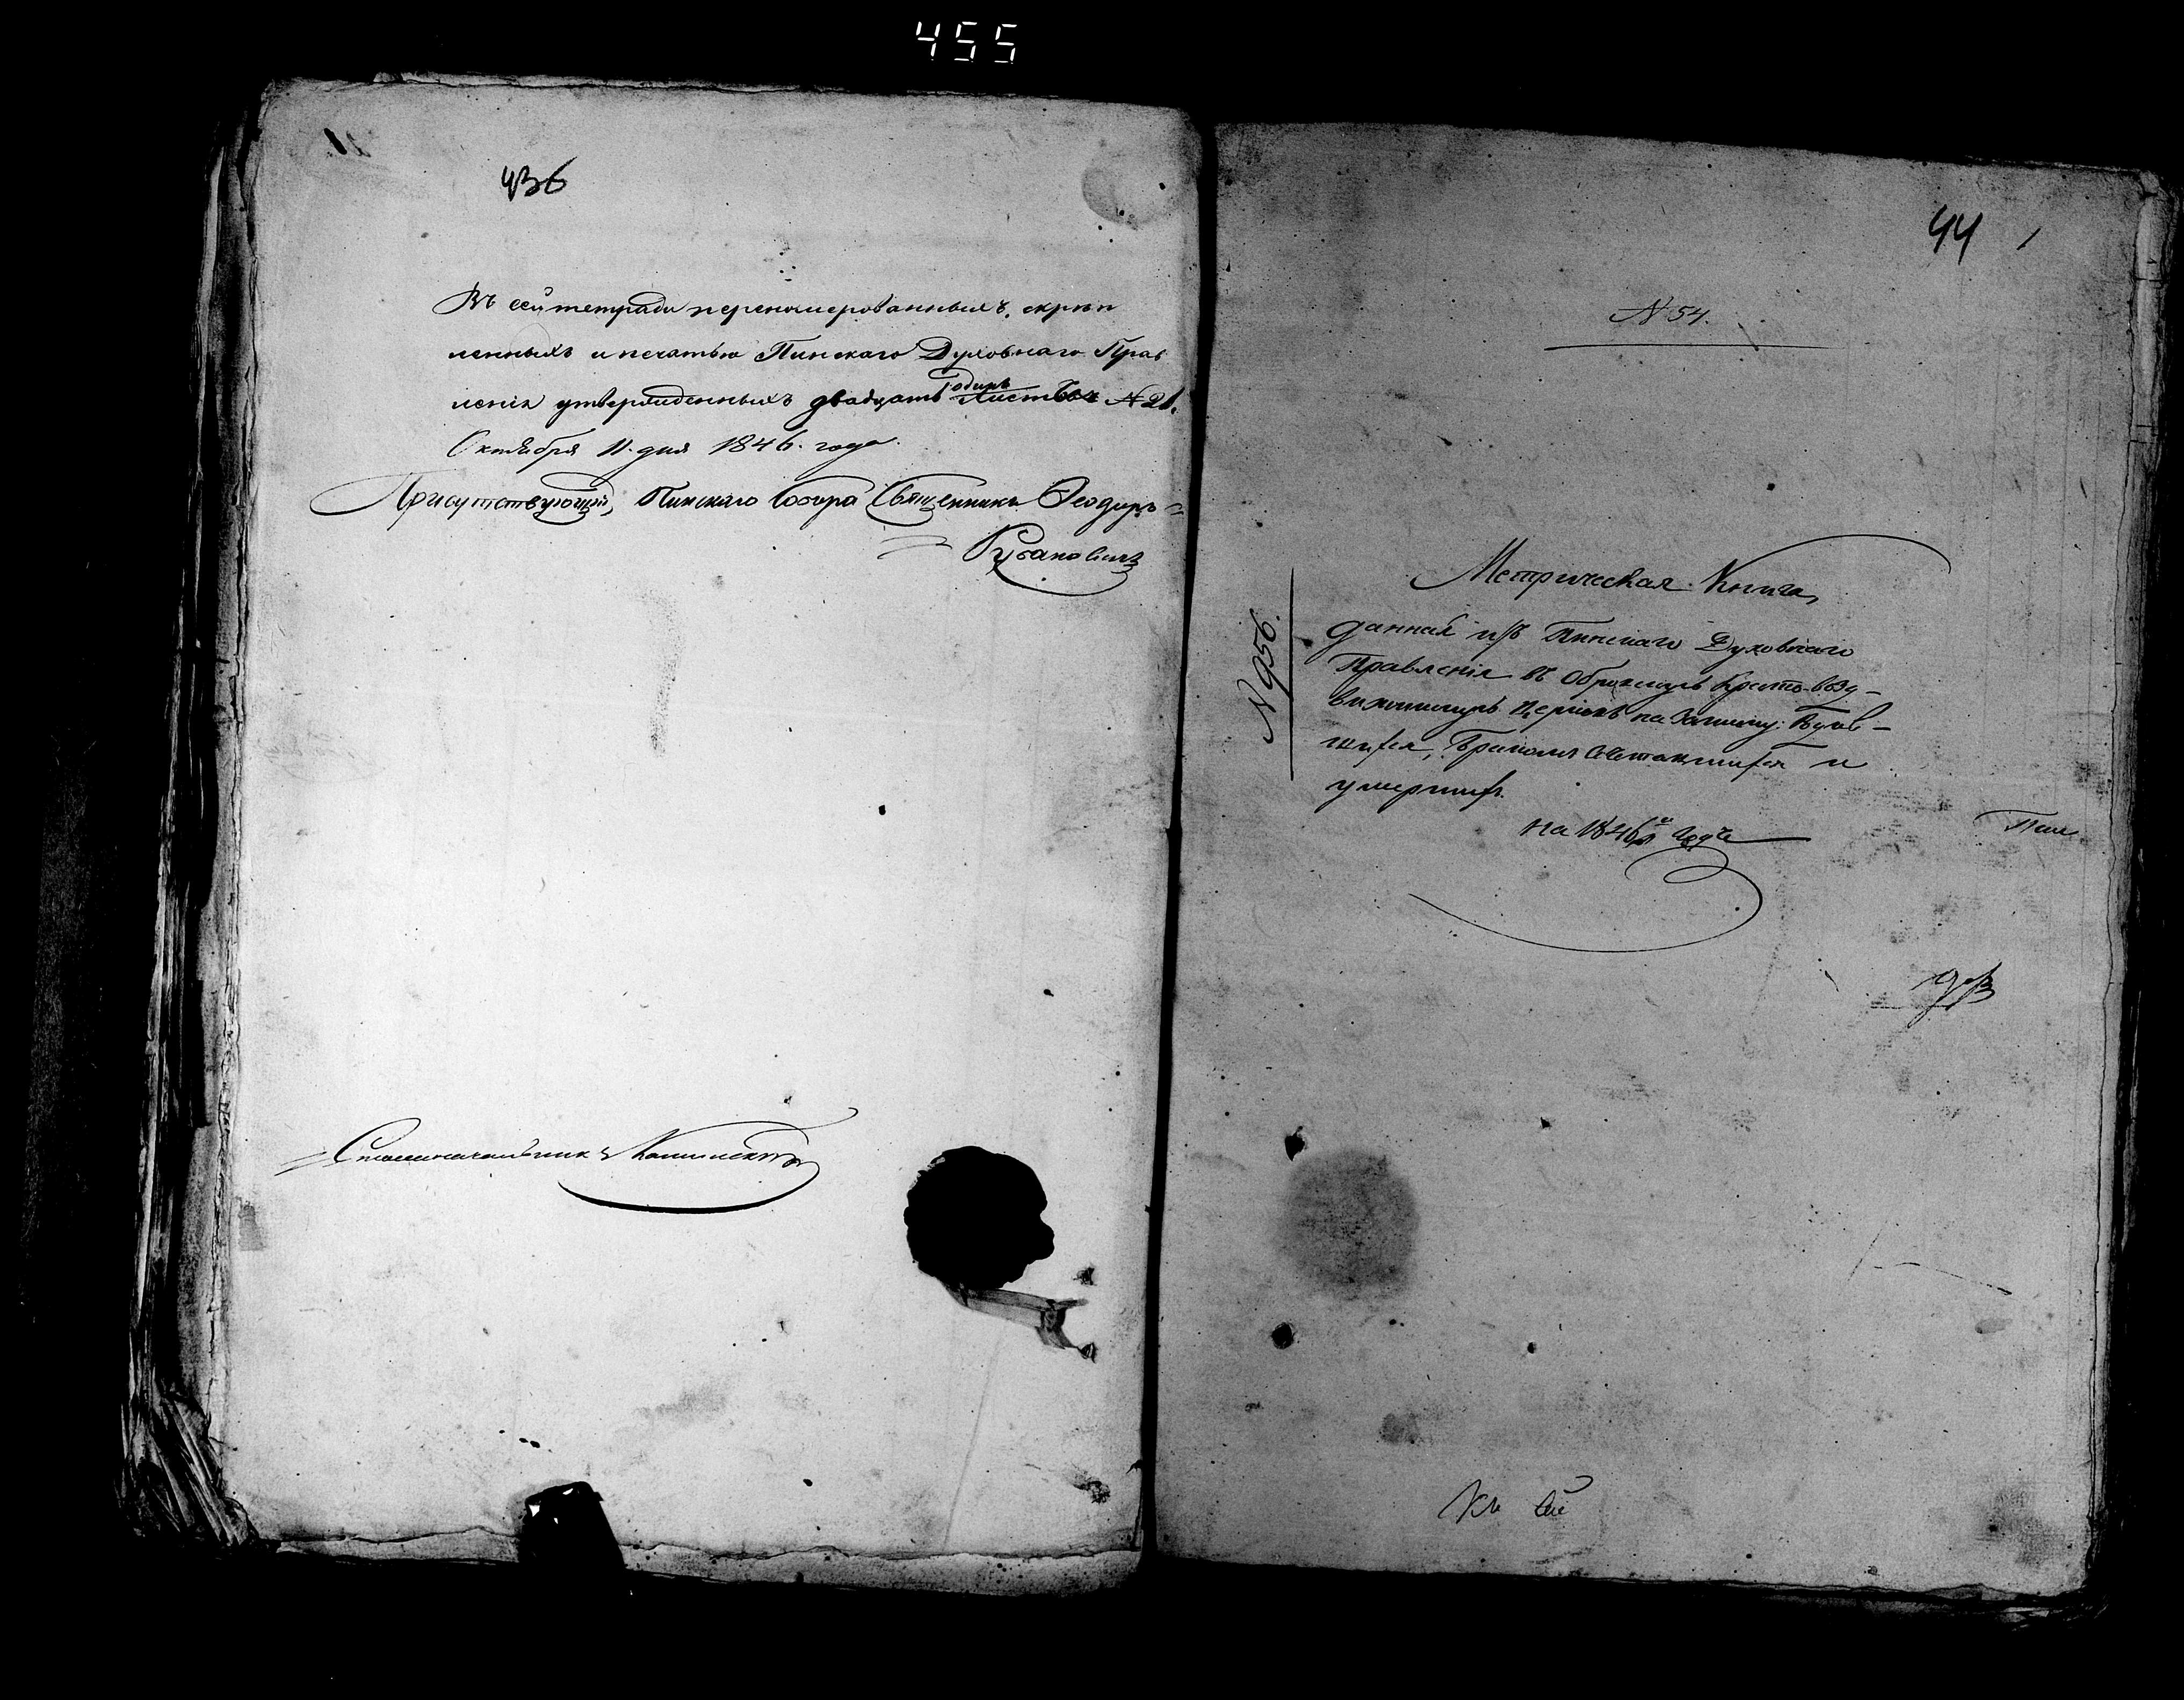 455
436
Въ сей тетради перенумерованныхъ, скрѣп
ленныхъ и печатью Пинскаго Духовнаго Прав
ленія утвержденныхъ двадцать одинъ листовъ №21.
Октября 11. дня 1846. года.
Присутствующій, Пинскаго Собора Священникъ Ѳеодоръ
Русановичъ
Столоначальникъ
44 1
N 54.
Метрическая Книга,
данная изъ Пинскаго Духовнаго
Правленія въ Кресто-возд-
виженскую церковь на записку: Родив-
шихся, Бракомъ сочетавшихся и
умершихъ.
на 1846й Годъ
N 956.
Къ сей